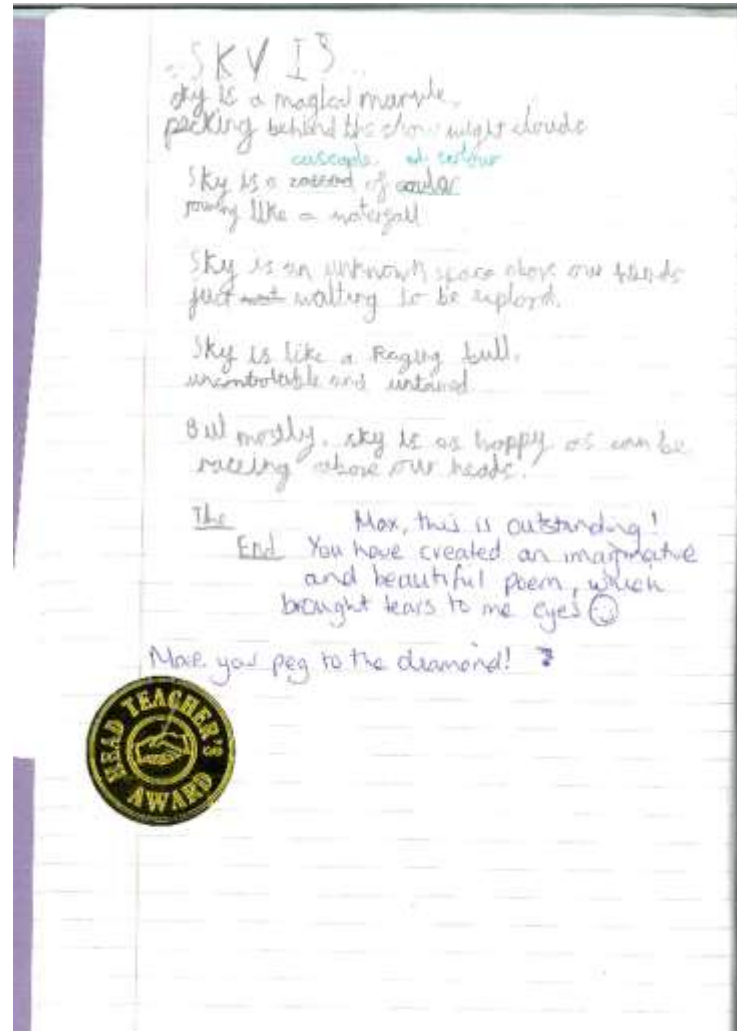 SKY IS
Sky is a magical marvle,
pecking behind the snow night clouds
cascade of colour
Sky is a of
like a waterfall
Sky is an unknown space above our heads
just waiting to be explord.
Sky is like a Raging bull,
and untamed
But mostly, sky is as happy as can be
raceing above our heads.
The
End
Max, this is outstanding!
You have created an imaginative
and beautiful poem, which
brought tears to me eyes
you peg to the diamond!
HEAD TEACHER'S
AWARD